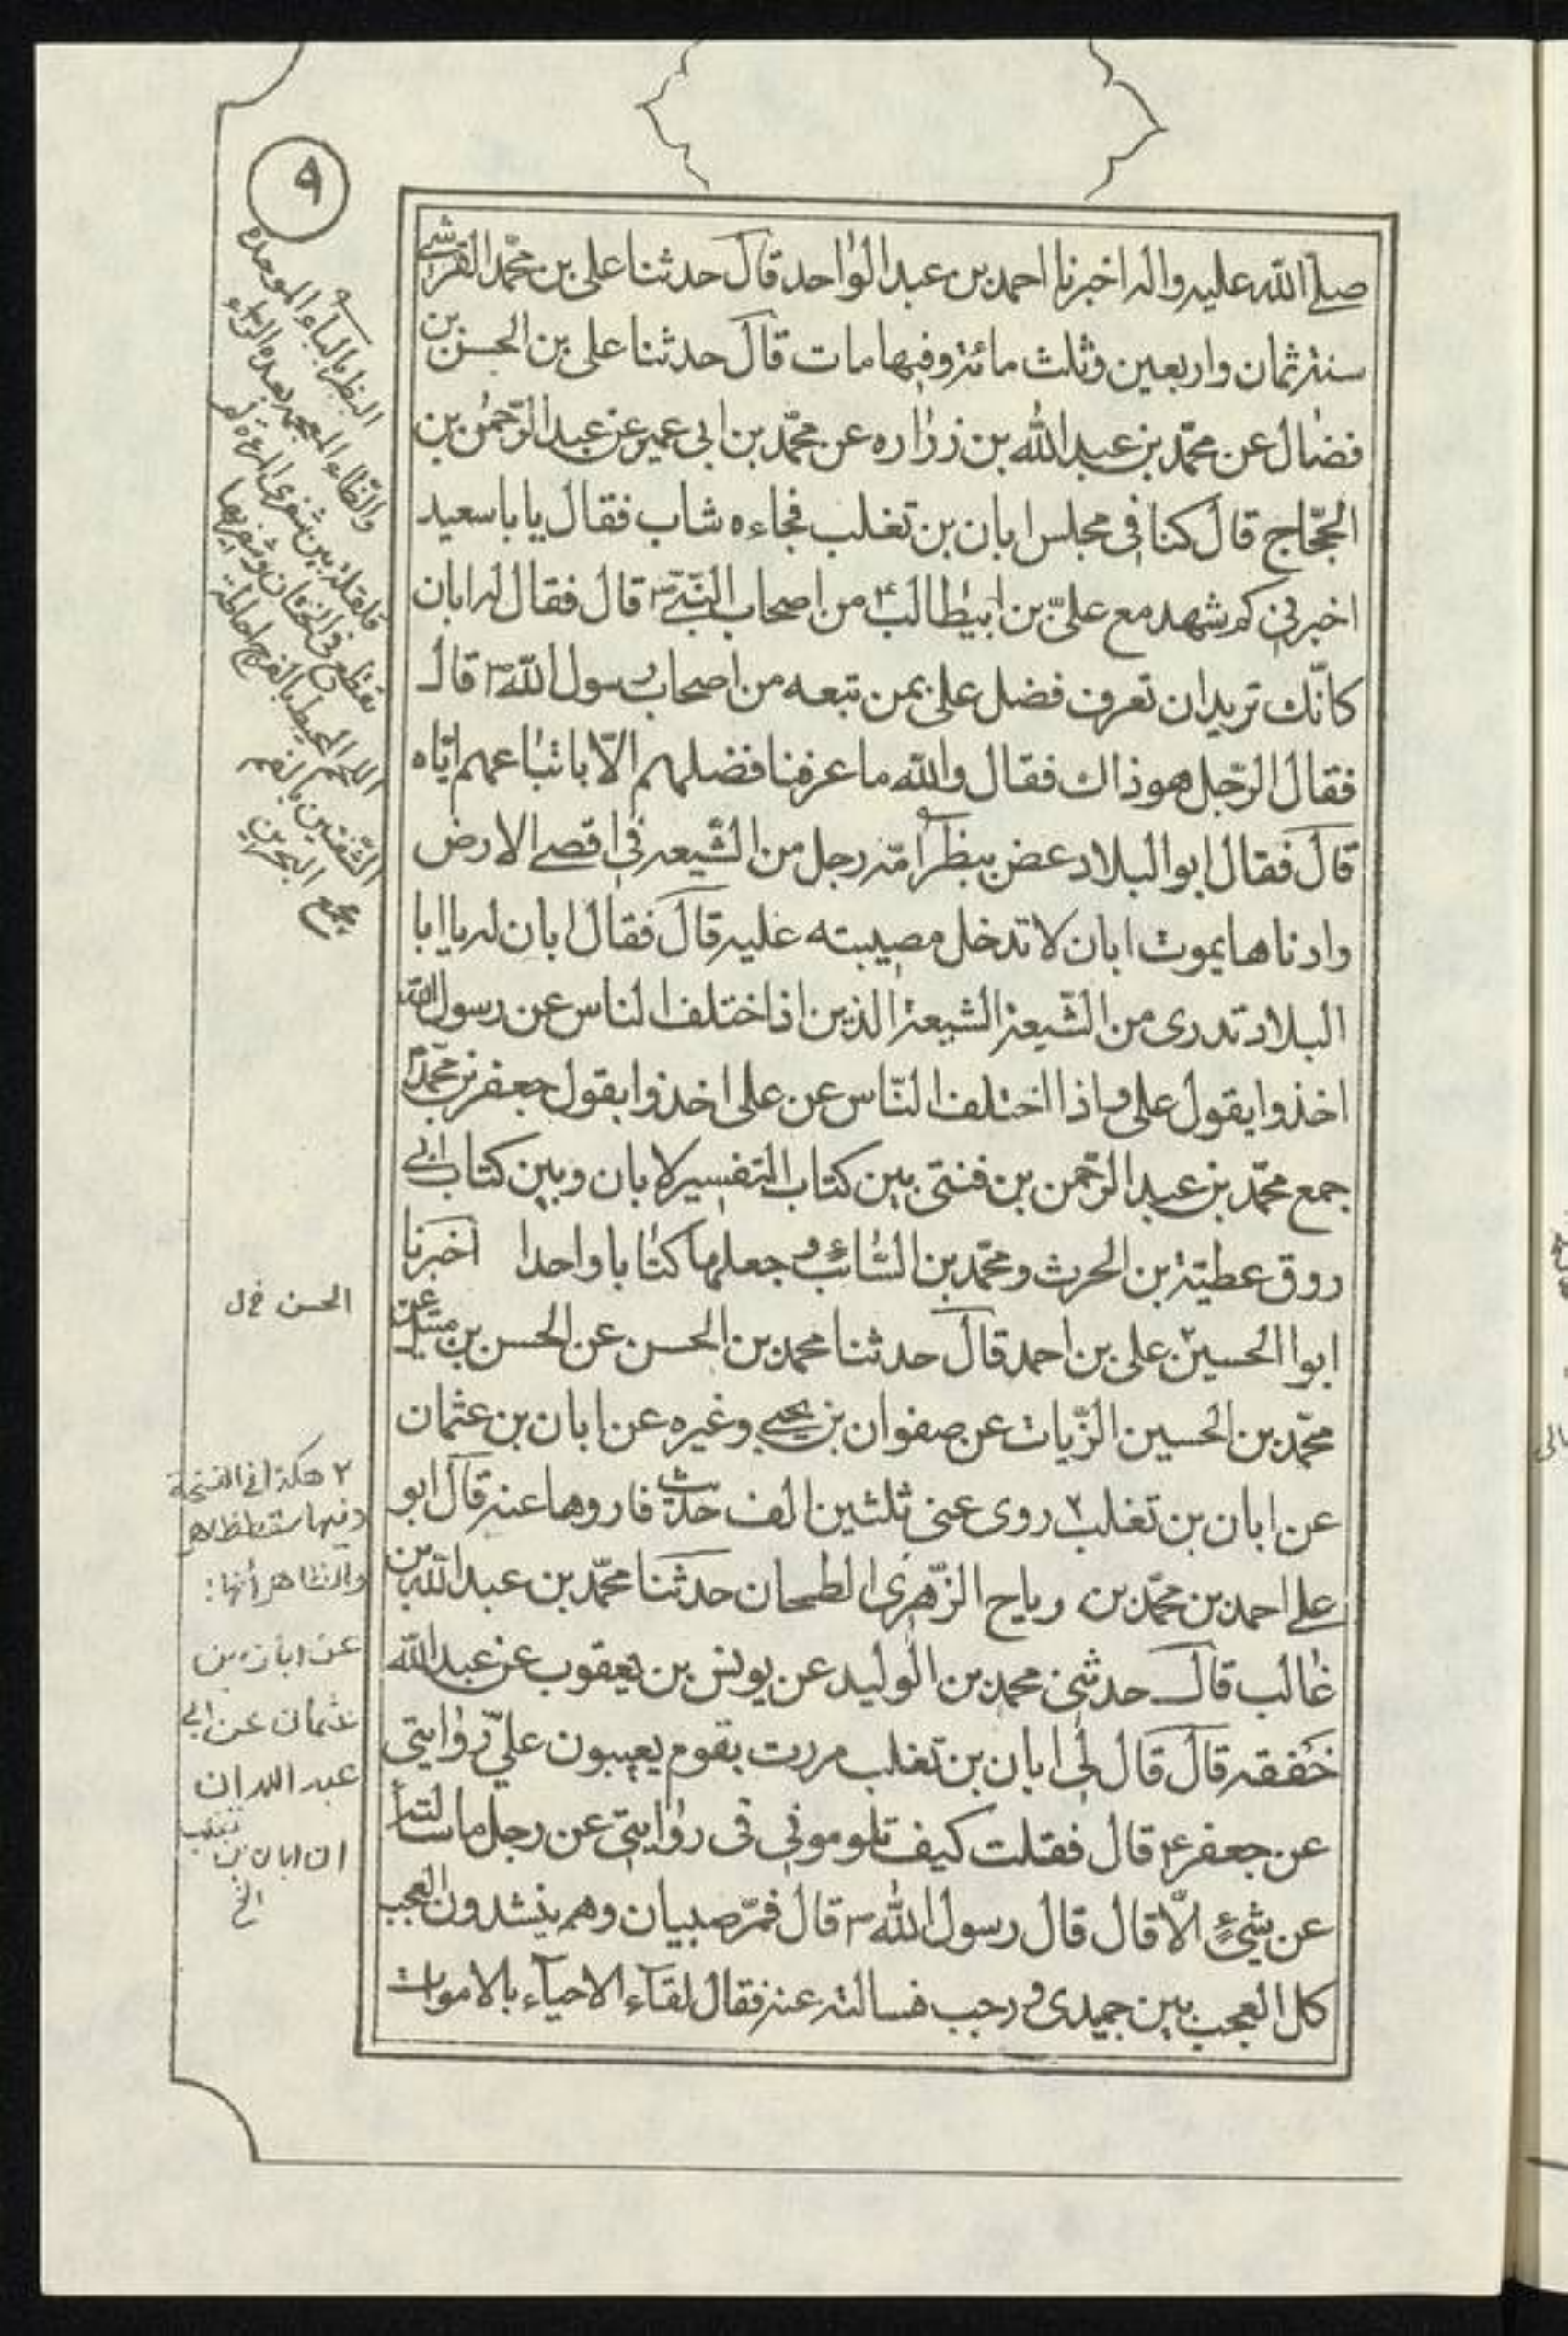 ٩
صلى الله عليه واله اخبرنا احمد بن عبد الواحد قال حدثنا على بن محمد القرشى
سنة ثمان واربعين وثلث مائة وفيها مات قال حدثنا على بن الحسن بن
فضال عن محمد بن عبد الله بن زراره عن محمد بن ابى عمير عن عبد الرحمن بن
الحجاج قال كنا فى مجلس ابان بن تغلب فجاءه شاب فقال يا باسعيد
اخبرنى كم شهد مع على بن ابيطالب ع من اصحاب النبى ص قال فقال له ابان
كانك تريد ان تعرف فضل على بمن تبعه من اصحاب رسول الله ص قال
فقال الرجل هو ذاك فقال والله ما عرفنا فضلهم الا باتباعهم اياه
قال فقال ابو البلاد عض ببظر امه رجل من الشيعه فى اقصى الارض
وادناها يموت ابان لا تدخل مصيبته عليه قال فقال ابان له يا ابا
البلاد تدرى من الشيعة الشيعة الذين اذا اختلف الناس عن رسول الله
اخذوا بقول على واذا اختلف الناس عن على اخذوا بقول جعفر بن محمد ع
جمع محمد بن عبد الرحمن بن فنتى بين كتاب التفسير لابان وبين كتاب ابى
روق عطية بن الحرث ومحمد بن السائب وجعلهما كتابا واحدا اخبرنا
ابوا الحسين ٢ على بن احمد قال حدثنا محمد بن الحسن عن الحسن بن متيل عن
محمد بن الحسين الزيات عن صفوان بن يحيى وغيره عن ابان بن عثمان
عن ابان بن تغلب ٢ روى عنى ثلثين الف حديث فاروها عنه قال ابو
على احمد بن محمد بن رباح الزهرى الطحان حدثنا محمد بن عبد الله بن
غالب قال حدثنى محمد بن الوليد عن يونس بن يعقوب عن عبد الله
خفقه قال قال لى ابان بن تغلب مررت بقوم يعيبون على روايتى
عن جعفر ع قال فقلت كيف تلومونى فى روايتى عن رجل ما سالته
عن شئ الا قال قال رسول الله ص قال فمر صبيان وهم ينشدون العجب
كل العجب بين جميدى و رجب فسالته عنه فقال لقاء الاحياء بالاموات
البظر بالباء الموحده
والظاء المعجمه بعده الراء
بين شفرى المرءة لم
تقطع فى الختان
اللحم المحيط بالفرج احاطة
الشفتين بالفم
مجمع البحرين
الحسن خ ل
٢ هكذا فى النسخة
وفيها سقط ظاهر
والظاهر أنها:
عن ابان بن
عثمان عن ابى
عبد الله ان
ان ابان بن تغلب
الخ